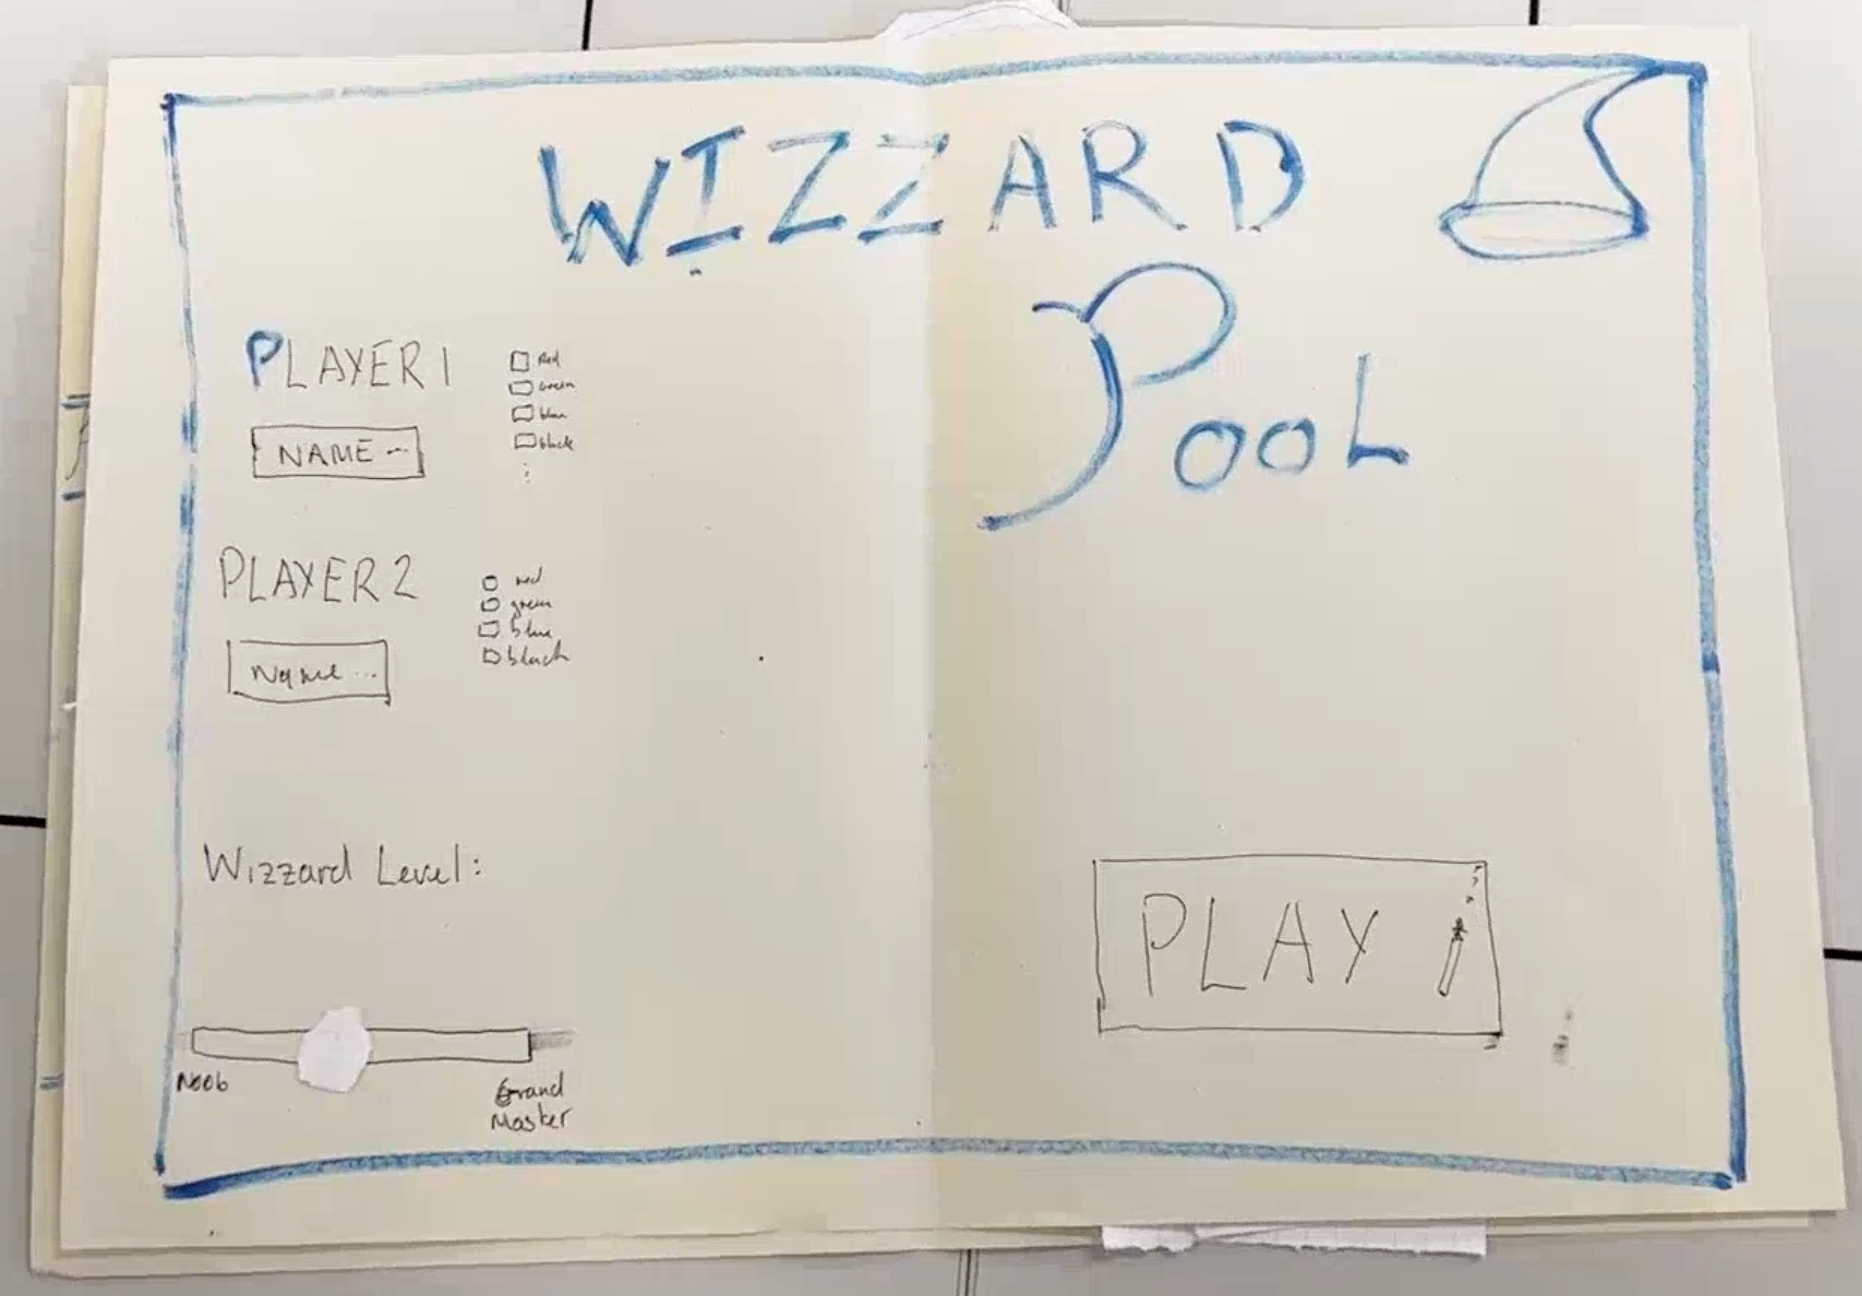 WIZZARD
POOL
PLAYER 1
Red
Green
blue
black
NAME ...
PLAYER 2
red
green
blue
black
Name ...
Wizzard Level:
Noob
Grand
Master
PLAY